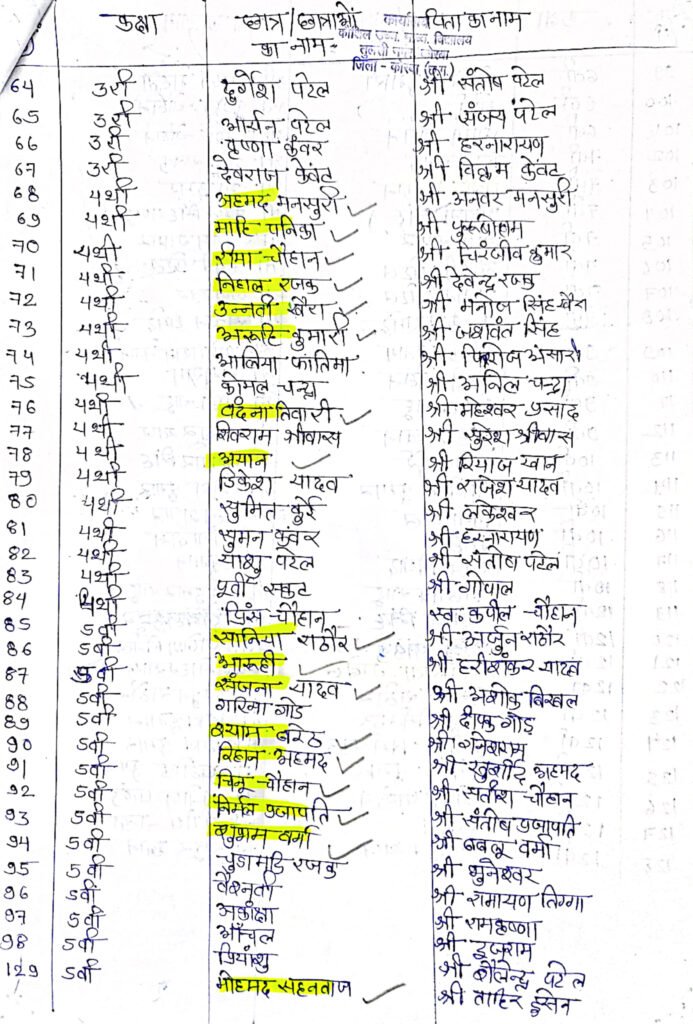 कक्षा छात्र/छात्राओं का नाम पिता का नाम
जिला - कोरबा (छ.ग.)
64 3री दुर्गेश पटेल श्री संतोष पटेल
65 3री आर्यन पटेल श्री संजय पटेल
66 3री कृष्णा कंवर श्री हरनारायण
67 3री देवराज केंवट श्री विक्रम केंवट
68 4थी अहमद मनसुरी श्री अनवर मनसुरी
69 4थी माहि पनिका श्री
70 4थी रीमा चौहान श्री चिरंजीव कुमार
71 4थी निहाल रजक श्री देवेन्द्र रजक
72 4थी उन्नती खैरा श्री मनोज सिंह खैरा
73 4थी अरूहि कुमारी श्री जसवंत सिंह
74 4थी आलिया फातिमा श्री फिरोज अंसारी
75 4थी कोमल चन्द्रा श्री अनिल चन्द्रा
76 4थी वंदना तिवारी श्री महेश्वर प्रसाद
77 4थी शिवराम श्रीवास श्री सुरेश श्रीवास
78 4थी अयान श्री रियाज खान
79 4थी डिकेश यादव श्री राजेश यादव
80 4थी सुमित कुर्रे श्री लकेश्वर
81 4थी सुमन कंवर श्री हरनारायण
82 4थी याशु पटेल श्री संतोष पटेल
83 4थी पूर्वी सकट श्री गोपाल
84 4थी प्रिंस चौहान स्व. कपील चौहान
85 5वी सानिया राठौर श्री अर्जुन राठौर
86 5वी आरूही श्री हरीशंकर यादव
87 5वी संजना यादव श्री अशोक
88 5वी गरिमा गोड श्री दीपक गोड़
89 5वी श्याम बरेठ श्री गनेशराम
90 5वी रिहान अहमद श्री खुर्शीद अहमद
91 5वी चिनू चौहान श्री सतीश चौहान
92 5वी निर्मल प्रजापति श्री संतोष प्रजापति
93 5वी शुभम वर्मा श्री बबलू वर्मा
94 5वी रजक श्री भुनेश्वर
95 5वी वैश्नवी श्री रामायण तिग्गा
96 5वी अकांक्षा श्री रामकृष्णा
97 5वी आँचल श्री इजराम
98 5वी प्रियांशु श्री शैलेन्द्र पटेल
129 5वी मोहमद सहनवाज श्री ताहिर हुसेन